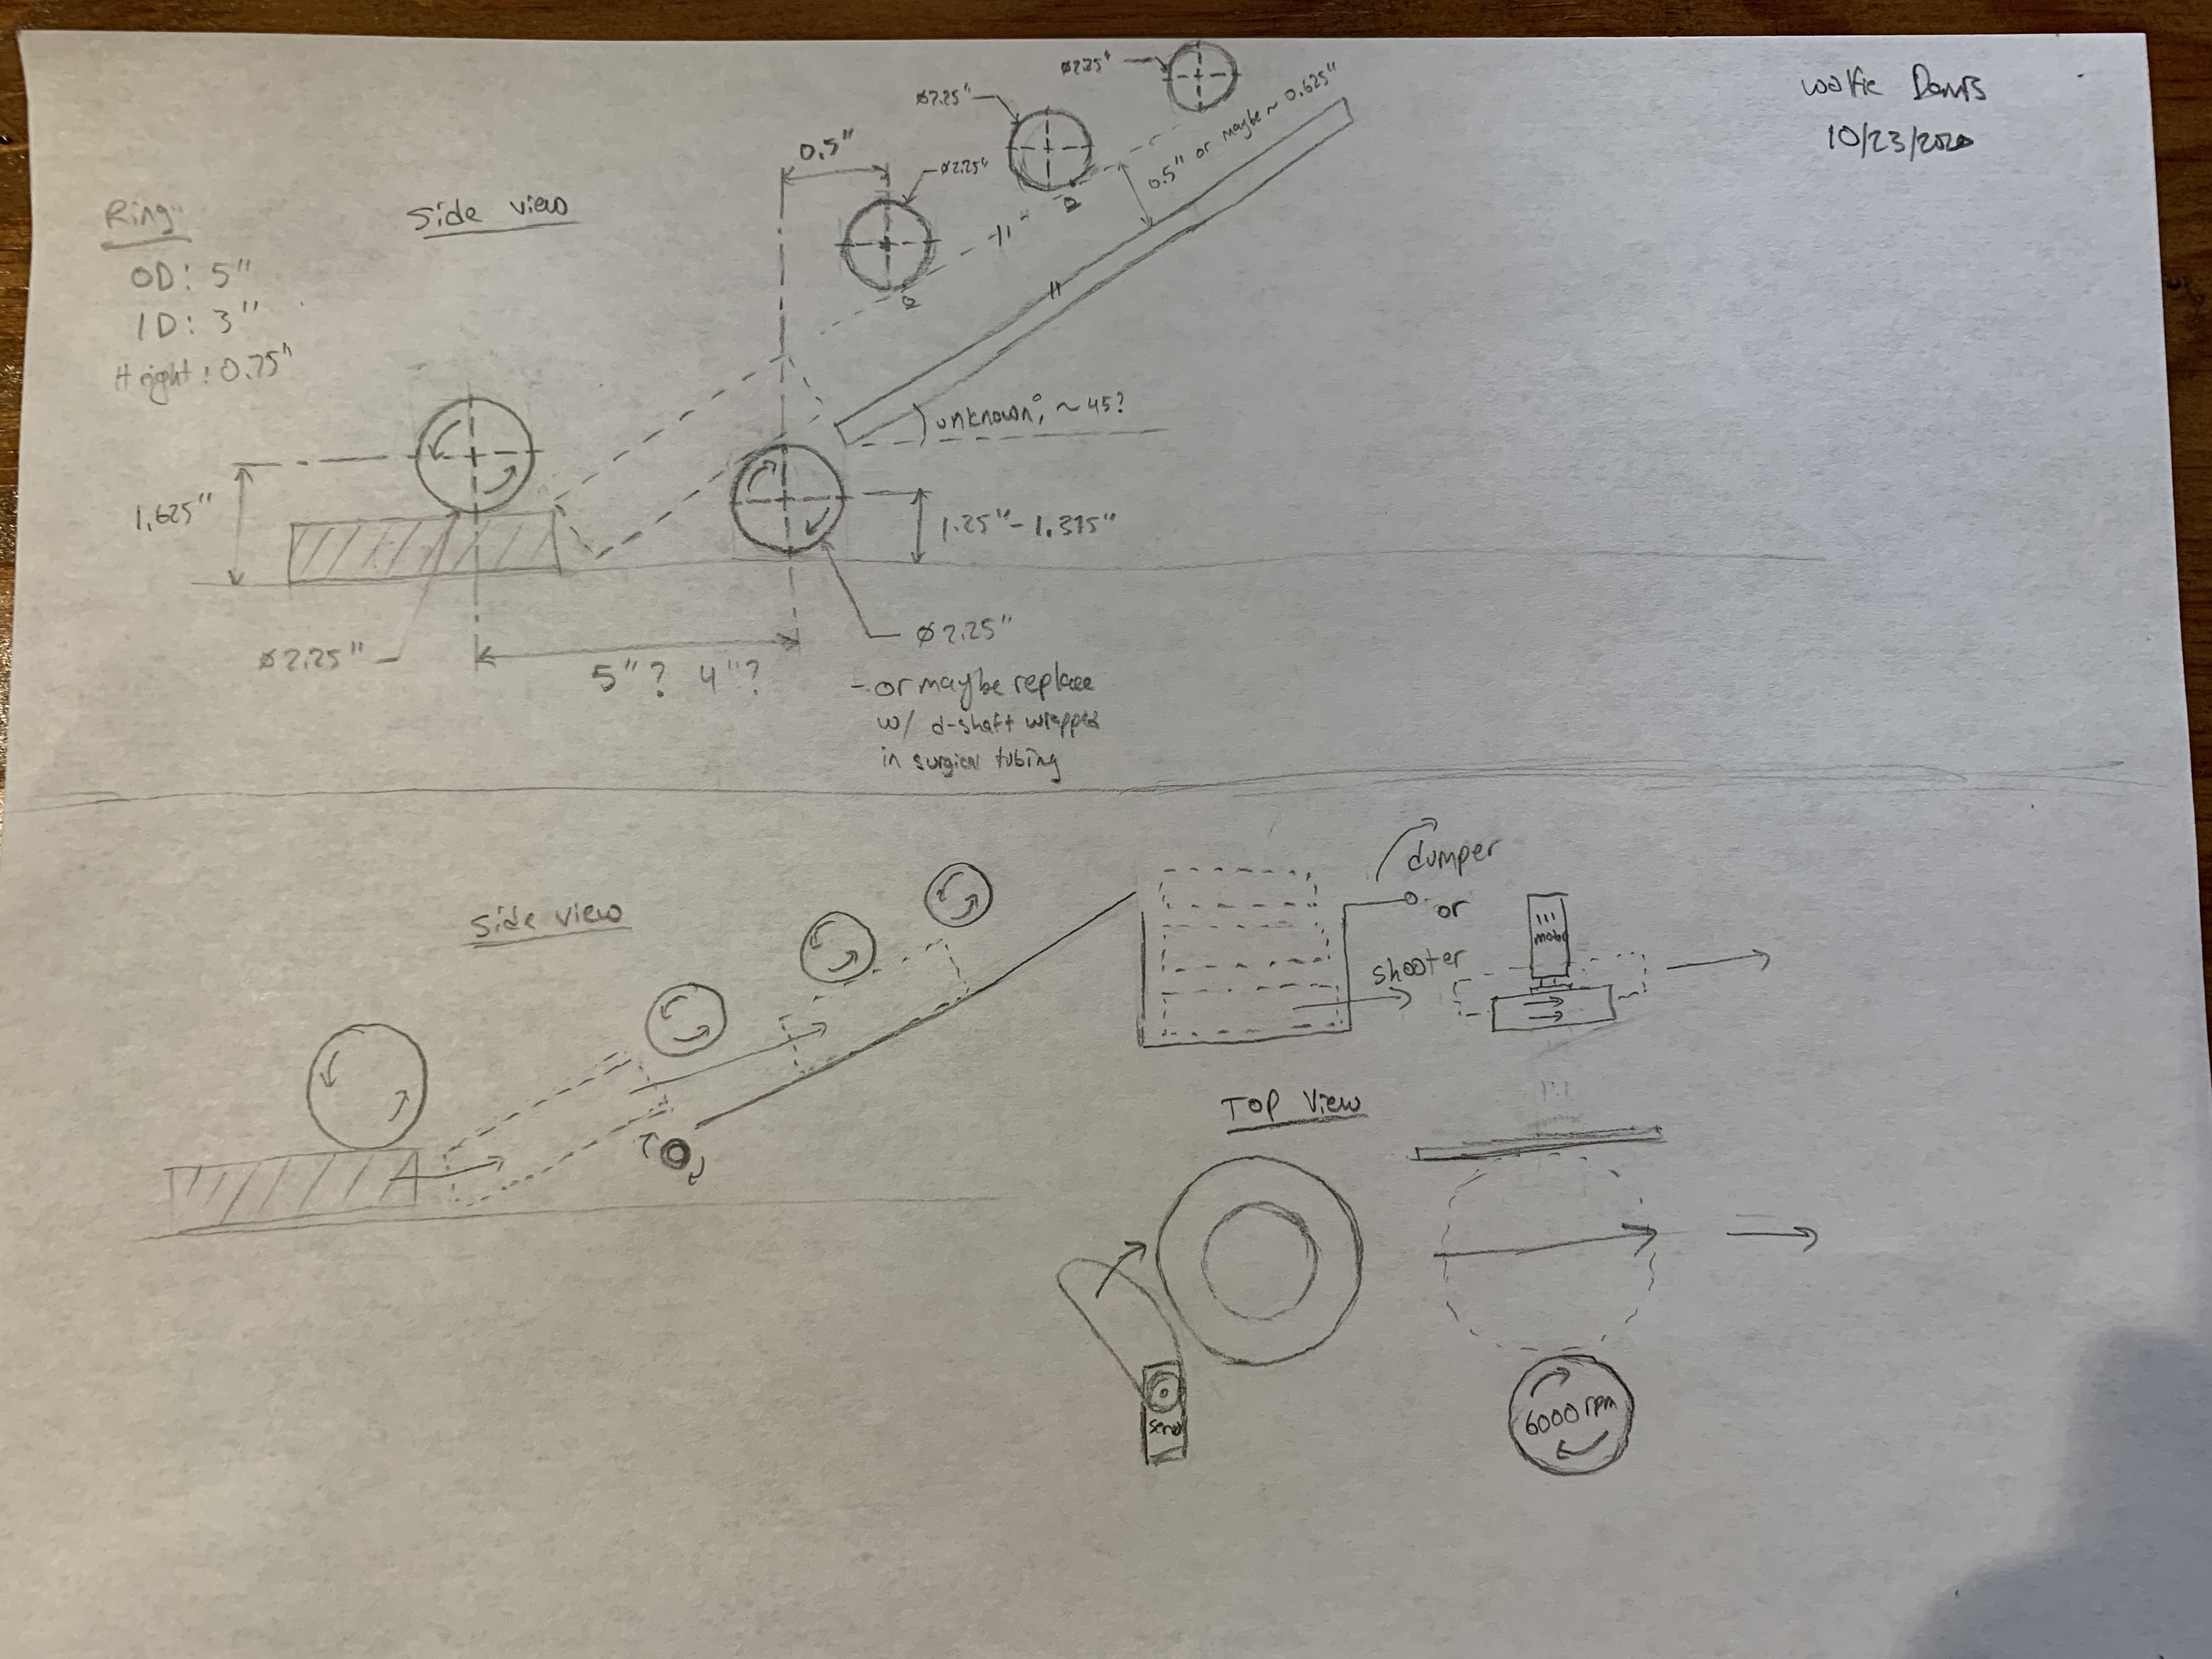 10/23/2020
Ring
OD: 5"
ID: 3"
Height: 0.75"
Side view
0.5"
Ø2.25"
Ø2.25"
Ø2.25"
0.5" or maybe ~ 0.625"
unknown°, ~45?
1.625"
1.25"- 1.375"
Ø2.25"
5"? 4"?
Ø2.25"
- or maybe replace
w/ d-shaft wrapped
in surgical tubing
Side view
dumper
or
shooter
TOP View
servo
6000 rpm